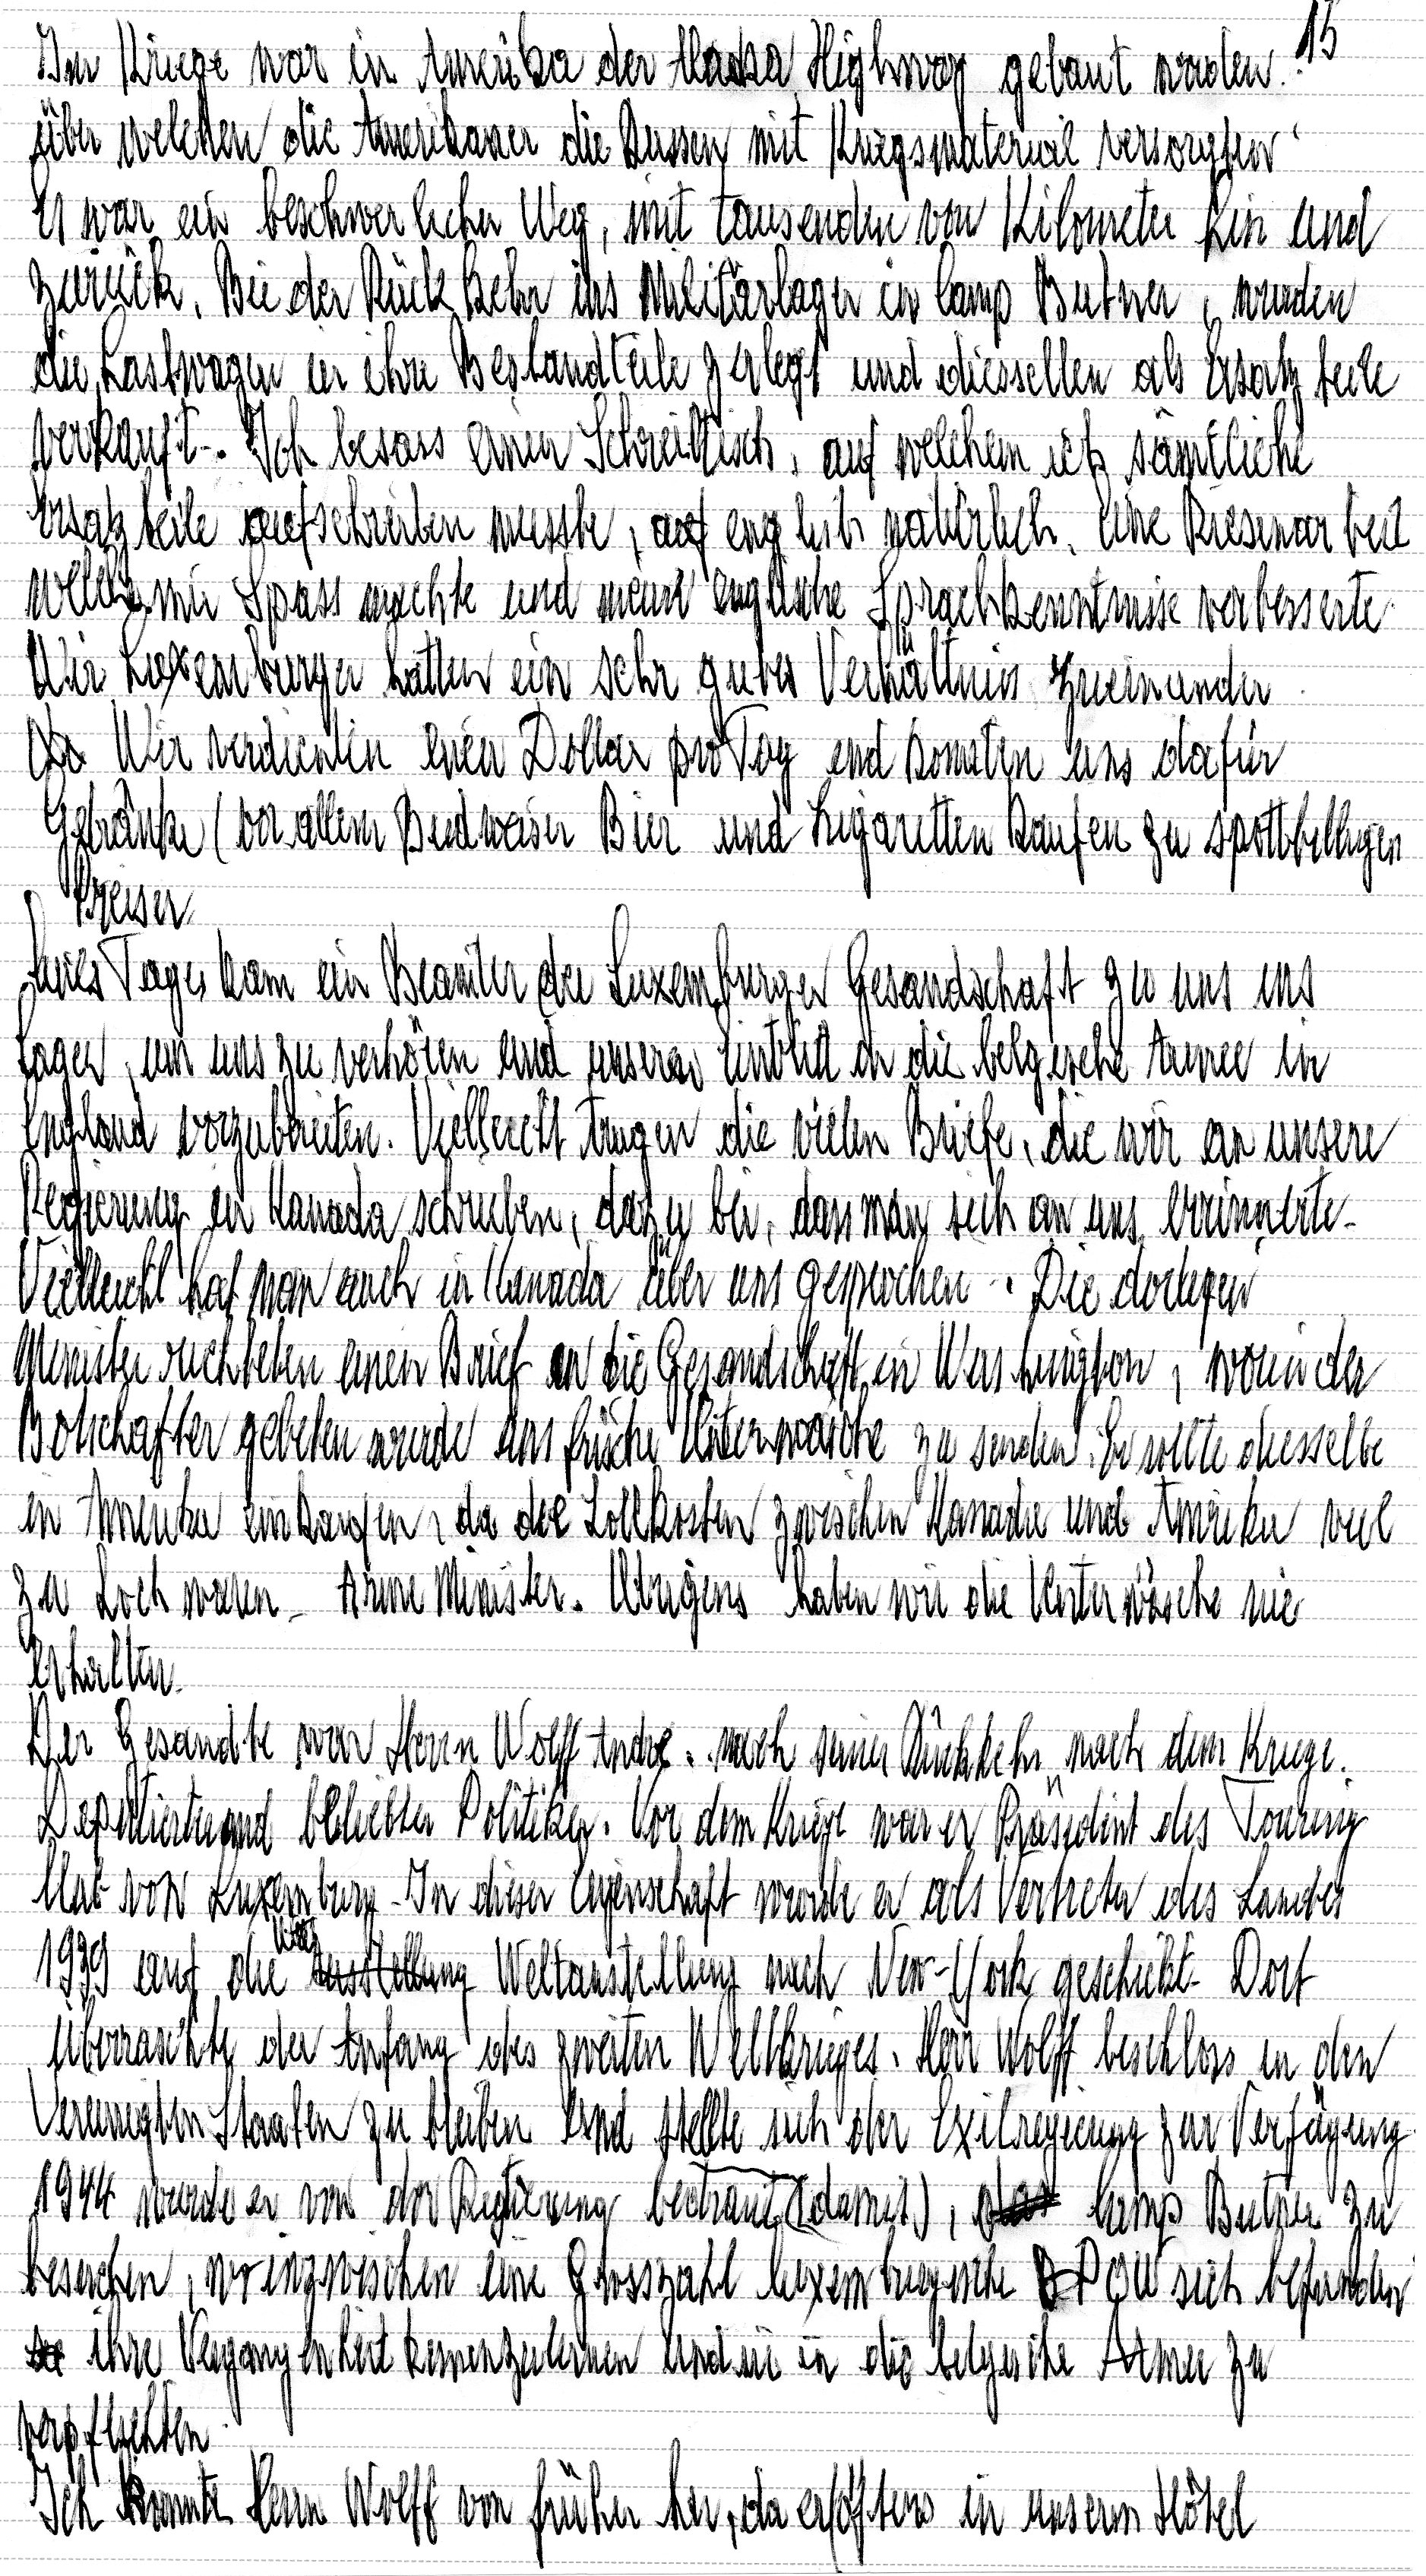 15
Im Kriege war in Amerika der Alaska Highway gebaut worden.
über welchen die Amerikaner die Russen mit Kriegsmaterial versorgten
Es war ein beschwerlicher Weg, mit tausenden von Kilometer hin und
zurück. Bei der Rückkehr ins Militärlager in Camp Butner, wurden
die Lastwagen in ihre Bestandteile zerlegt und diesselben als Ersatzteile
verkauft. Ich besass einen Schreibtisch, auf welchem ich sämtliche
Ersatzteile aufschreiben musste, auf english natürlich. Eine Riesenarbeit
welche mir Spass machte und meine englische Sprachkenntnisse verbesserte.
Wir Luxemburger hatten ein sehr gutes Verhältnis zueinander.
Wir verdienten einen Dollar pro Tag und konnten uns dafür
Getränke (vor allem Budweiser Bier und Zigaretten kaufen zu spottbilligen
Preisen
Eines Tages kam ein Beamter der Luxemburger Gesandschaft zu uns ins
Lager, um uns zu verhören und unseren Eintritt in die belgische Armee in
England vorzubereiten. Vielleicht trugen die vielen Briefe, die wir an unsere
Regierung in Kanada schrieben, dazu bei, dass man sich an uns erinnerte.
Vielleicht hat man auch in Kanada über uns gesprochen. Die dortigen
Minister einen Brief an die Gesandschaft in Washington, worin der
Botschafter gebeten wurde uns frische Unterwäsche zu senden. Er sollte diesselbe
in Amerika einkaufen, da die Zollkosten zwischen Kanada und Amerika viel
zu hoch waren. Arme Minister. Übrigens haben wir die Unterwäsche nie
erhalten.
Der Gesandte war Herrn Wolff André. nach seiner Rückkehr nach dem Kriege.
Deputierter und beliebter Politiker. Vor dem Kriege war er Präsident des Touring
Club von Luxemburg. In dieser Eigenschaft wurde er als Vertreter des Landes
1939 auf die Weltausstellung nach New-York geschickt. Dort
überraschte der Anfang des zweiten Weltkrieges. Herr Wolff beschloss in den
Vereinigten Staaten zu bleiben und stellte sich der Exilregierung zur Verfügung.
1944 wurde er von der Regierung betraut (damit), Camp Butner zu
besuchen, wo inzwischen eine Grosszahl luxemburgische POW sich befanden
ihre Vergangenheit kennenzulernen und sie in die belgische Armee zu
verpflichten.
Ich kannte Herrn Wolff von früher her, da er öfters in unserm Hôtel